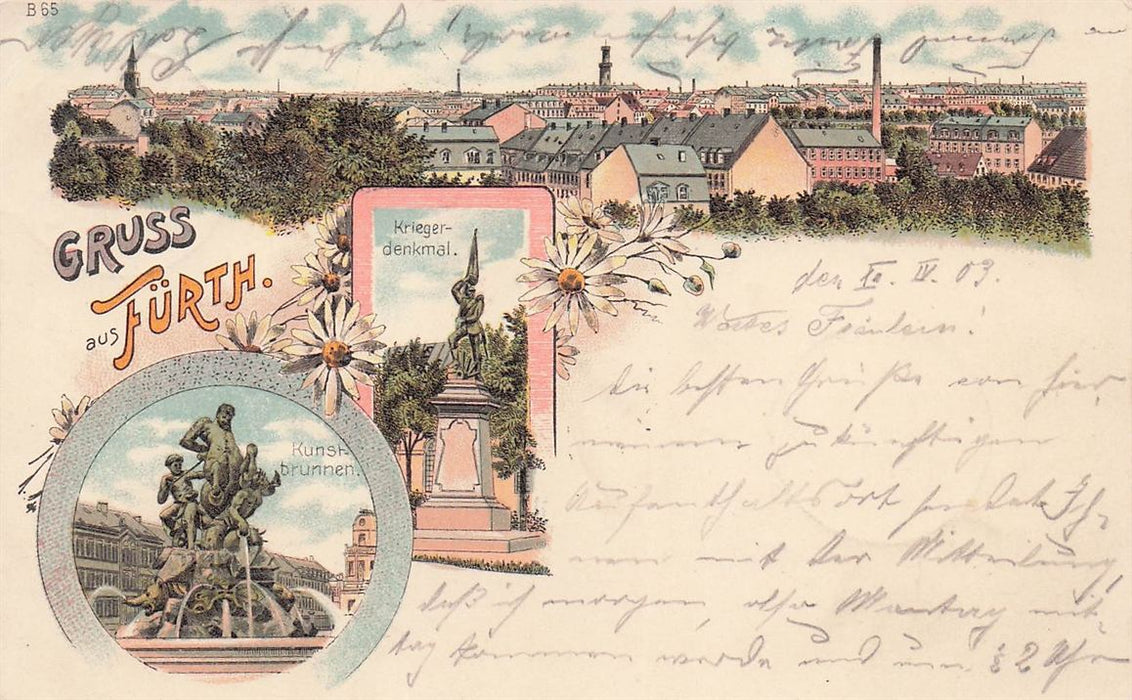 B 65
GRUSS
aus FÜRTH.
Krieger-
denkmal.
Kunst-
brunnen.
den IV. 03.
Wertes Fräulein!
Die besten Grüße von hier,
meinem zukünftigen
Aufenthaltsort sendet Ih-
nen mit der Mitteilung,
daß ich morgen, also Montag mit-
tag kommen werde und um 2 Uhr